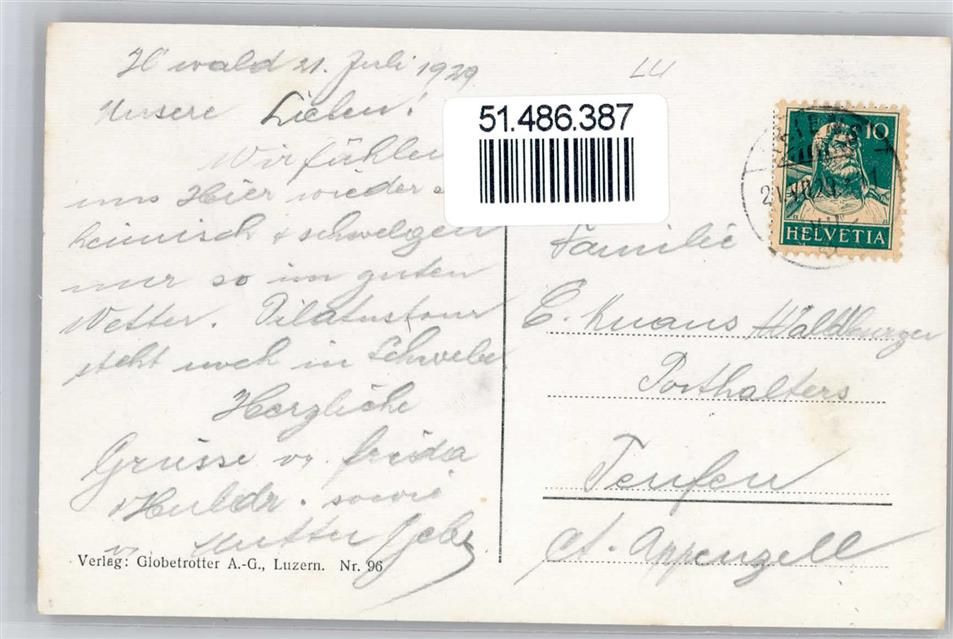 wald 21. Juli 1929
LU
Unsere Lieben!
51.486.387
10
HELVETIA
Wir fühlen
uns Hier wieder
heimisch & schwelgen
nur so im guten
Wetter. Pilatustour
steht noch in Schwebe
Herzliche
Grüsse v. Frida
Huldr. sowie
v. Mutter
Familie
E. Knaus Waldburger
Posthalters
Teufen
Ct. Appenzell
Verlag: Globetrotter A.-G., Luzern. Nr. 96